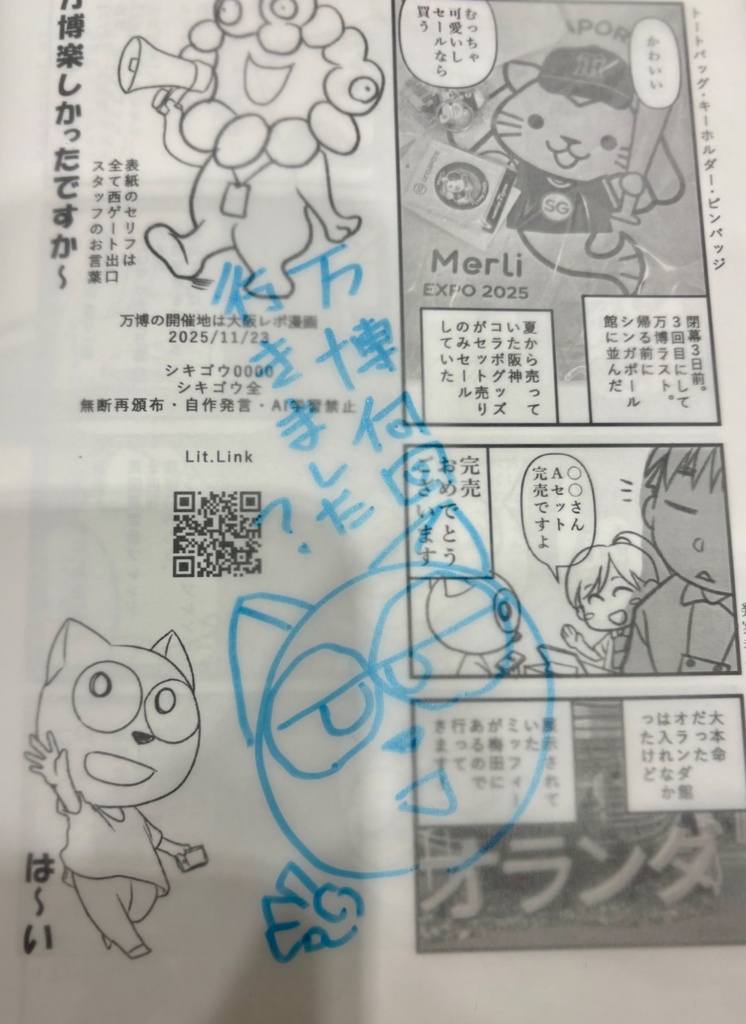 トートバッグ・キーホルダー・ピンバッジ
かわいい
むっちゃ
可愛いし
セールなら
買う
APOR
SG
Merli
EXPO 2025
閉幕3日前。
3回目にして
万博ラスト。
帰る前に
シンガポール
館に並んだ
夏から売って
いた阪神
コラボグッズ
がセット売り
のみセール
していた
〇〇さん
Aセット
完売ですよ
完売
おめでとう
ございます
大本命
だった
オランダ館
は入れなか
ったけど
展示されて
いた
ミッフィー
が梅田に
あるので
行って
きます
オランダ
万博楽しかったですか〜
表紙のセリフは
全て西ゲート出口
スタッフのお言葉
万博の開催地は大阪レポ漫画
2025/11/23
シキゴウ0000
シキゴウ全
無断再頒布・自作発言・AI学習禁止
Lit.Link
は〜い
万博何回
行きました?